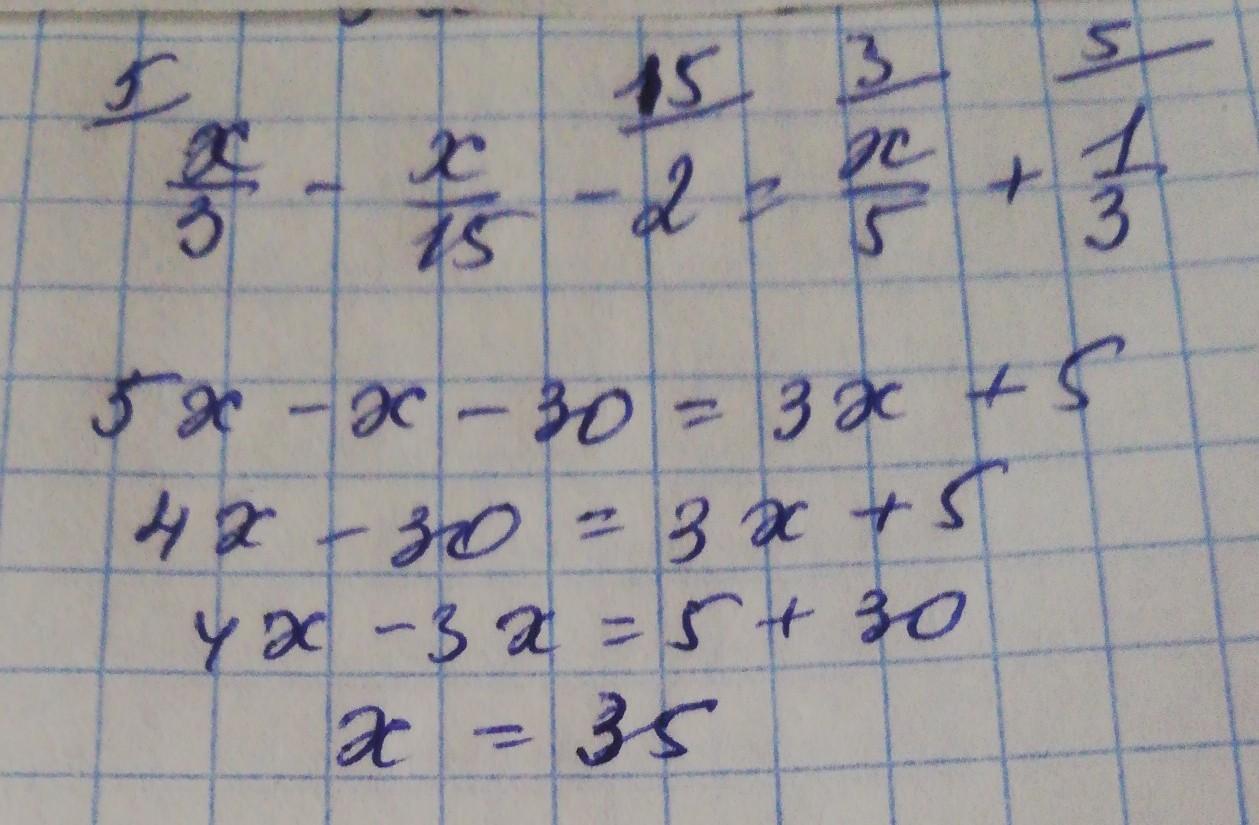 5 15 3 5
x/3 - x/15 - 2 = x/5 + 1/3
5x - x - 30 = 3x + 5
4x - 30 = 3x + 5
4x - 3x = 5 + 30
x = 35